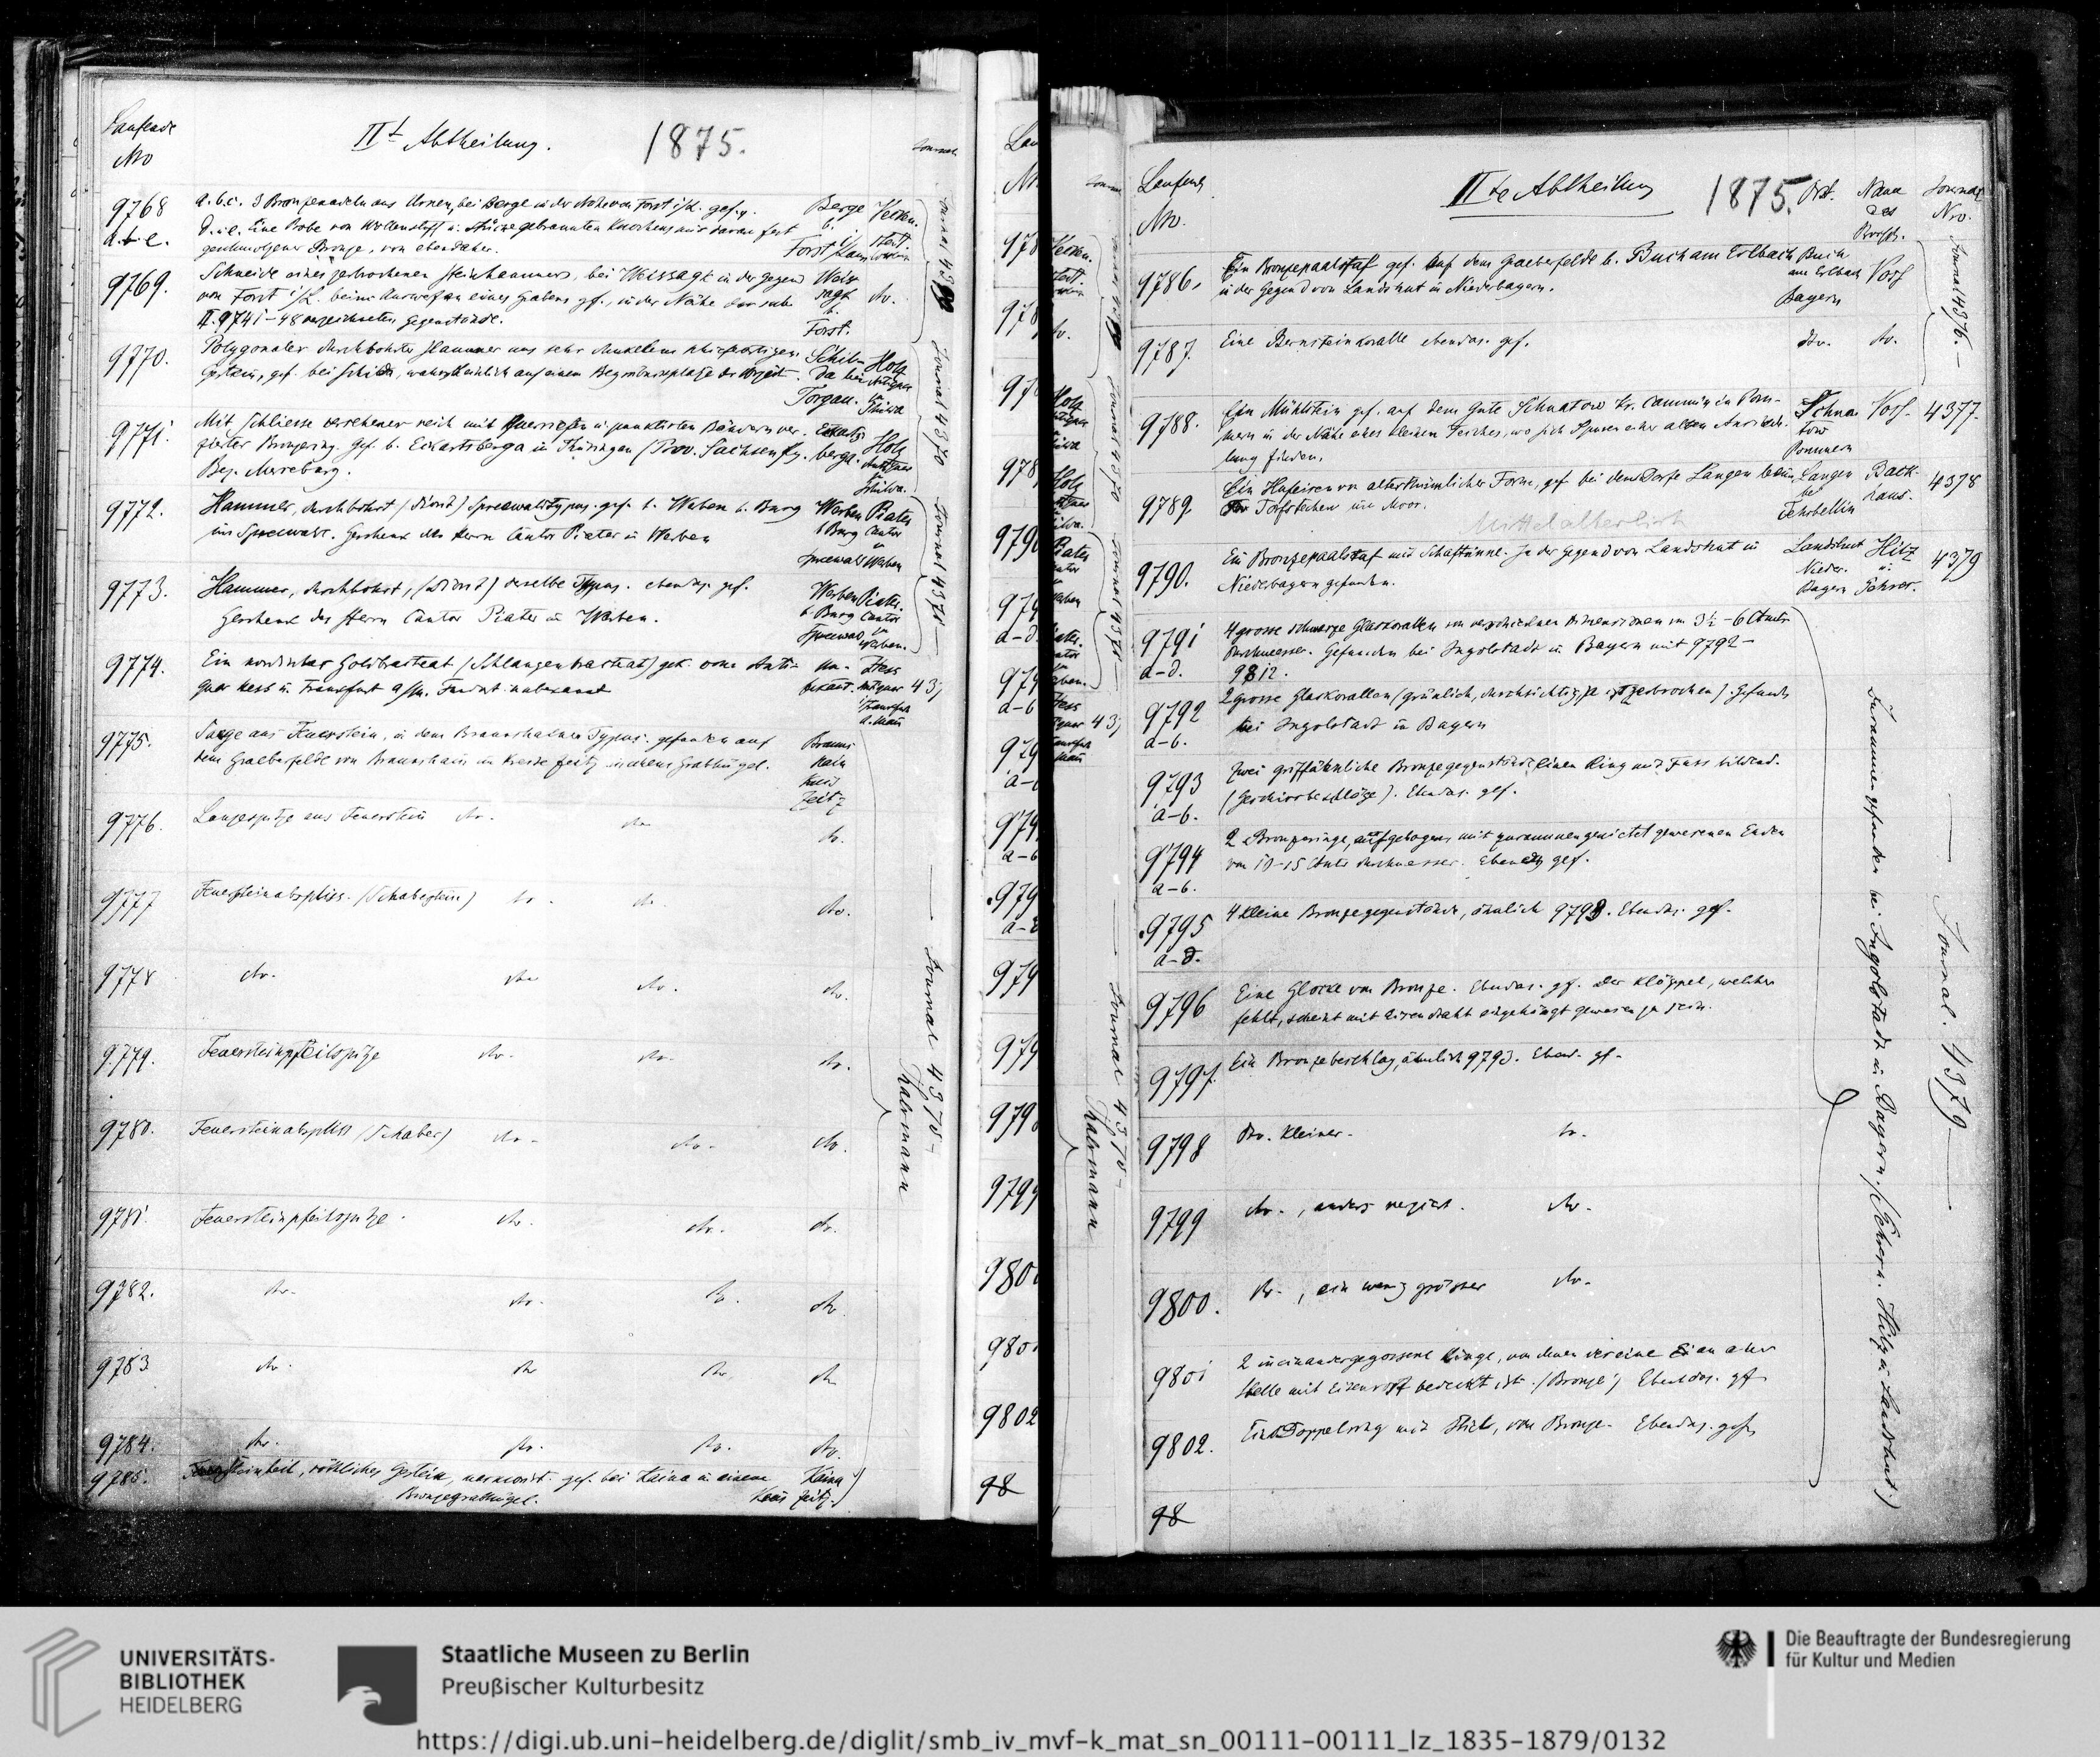 Laufende
No
IIt Abtheilung.
1875.
Journal
9768
a.b.c. 3 Bronzenadeln aus Urnen, bei Berge in der Nähe von Forst i/L. gef.
Berge
a.-b-e.
d.u.e. Eine Probe von Wollenstoff u. Stücke gebrannten Knochens mit daran fest
geschmolzener Bronze, von ebendaher.
Forst
9769.
Schneide eines zerbrochenen Steinhammers, bei Weissagk in der Gegend
Weis
sagk
b.
Forst.
von Forst i/L. beim Auswerfen eines Grabens gef., in der Nähe der sub
II. 9741-48 verzeichneten Gegenstände.
9770.
Polygonaler durchbohrter Hammer aus sehr dunkelem
Gestein, gef. bei Schilda, wahrscheinlich auf einem Begräbnissplatze der Vorzeit.
Schil-
da bei
Torgau.
Holz
Antiquar
in
Schilda
Journal 4370
9771.
Mit Schliesse versehener reich mit Querriefen u. punktirten Bändern ver-
zierter Bronzering. Gef. b. Eckartsberga in Thüringen (Prov. Sachsen Rg.
Bez. Merseburg.
berga.
Holz
Antiquar
in
Schilda.
9772.
Hammer, durchbohrt (Diorit) Spreewaldtypus. gef. b. Werben b. Burg
im Spreewald. Geschenk des Herrn Cantor Piater in Werben
Werben
b Burg
Spreewald
Piater
Cantor
in
Werben
Journal 4371
9773.
Hammer, durchbohrt, (Diorit) derselbe Typus. ebendas. gef.
Geschenk des Herrn Cantor Piater in Werben.
Werben
b. Burg
Spreewald
Piater.
Cantor
in
Werben.
9774.
Ein nordischer Goldbracteat (Schlangenbracteat) gek. vom Anti-
quar Hess in Frankfurt a/M. Fundort unbekannt
un-
bekannt.
Hess
Antiquar
Frankfurt
a. Main
43
9775.
Saege aus Feuerstein, in dem Braunshainer Typus. gefunden auf
dem Graeberfelde von Braunshain im Kreise Zeitz in einem Grabhügel.
Brauns
hain
Kreis
Zeitz
9776.
Lanzespitze aus Feuerstein do.
do
do.
9777
Feuersteinabspliss. (Schabestein) do.
do.
do.
9778
do.
do
do.
do.
Journal 4375-
Thalemann
9779.
Feuersteinpfeilspitze
do.
do.
do.
9780.
Feuersteinabspliss (Schaber)
do.
do.
do.
9781.
Feuersteinpfeilspitze.
do.
do.
do.
9782.
do.
do.
do.
do.
9783
do.
do
do.
do
9784.
do.
do.
do.
do.
9785.
Steinbeil, röthliches Gestein, gef. bei Kaina in einem
Bronzegrabhügel.
Kaina
Kreis Zeitz.
Laufende
No.
IIte Abtheilung
1875.
Ort.
Name
des
Journal
No.
9786.
Ein Bronzepaalstaf gef. auf dem Graeberfelde b. Buch am Erlbach
in der Gegend von Landshut in Niederbayern.
Buch
am Erlbach
Bayern
Voss
Journal 4376.-
9787.
Eine Bernsteinkoralle ebendas. gef.
do.
do.
9788.
Ein Mühlstein gef. auf dem Gute Schnatow Kr. Cammin in Pom-
mern in der Nähe eines kleinen Teiches, wo sich Spuren einer alten Ansiede-
lung finden.
Schna
tow
Pommern
Voss-
4377-
9789.
Ein Hufeisen von alterthümlicher Form, gef bei dem Dorfe Langen beim
Torfstechen im Moor.
Mittelalterlich
Langen
bei
Fehrbellin
Back
haus.
4378
9790.
Ein Bronzepaalstaf mit Schaftrinne. In der Gegend von Landshut in
Niederbayern gefunden.
Landshut
Nieder.
Bayern
Hilz
u.
Föhrer.
4379
9791
a-d.
4 grosse schwarze Glaskorallen von verschiedenen Dimensionen von 3½-6 Cmtr
Durchmesser. Gefunden bei Ingolstadt in Bayern mit 9792-
9812.
9792
a-b.
2 grosse Glaskorallen (grünlich, durchsichtig, ist zerbrochen). Gefunden
bei Ingolstadt in Bayern
9793
a-b.
Zwei griffähnliche Bronzegegenstände einen Ring mit Fuss bildend.
(Geschirrbeschläge). Ebendas. gef.
9794
a-b.
2 Bronzeringe, aufgebogen, mit zusammengenietet gewesenen Enden
von 10-15 Cmtr Durchmesser. Ebendas gef.
.9795
a-d.
4 kleine Bronzegegenstände, ähnlich 9793. Ebendas. gef.
9796
Eine Glocke von Bronze. Ebendas. gef. Der Klöppel, welcher
fehlt, scheint mit Eisendraht eingehängt gewesen zu sein.
9797.
Ein Bronzebeschlag, ähnlich 9793. Ebend. gef.
9798
do. kleiner.
do.
9799
do., anders verziert.
do.
9800.
do., ein wenig grösser
do.
9801
2 ineinandergegossene Ringe, von denen der eine an einer
Stelle mit Eisenrost bedeckt ist. (Bronze) Ebendas. gef
9802.
Ein Doppelring mit Stiel, von Bronze. Ebendas. gef.
98
Zusammen gefunden bei Ingolstadt in Bayern.
Journal. 4379
UNIVERSITÄTS-
BIBLIOTHEK
HEIDELBERG
Staatliche Museen zu Berlin
Preußischer Kulturbesitz
Die Beauftragte der Bundesregierung
für Kultur und Medien
https://digi.ub.uni-heidelberg.de/diglit/smb_iv_mvf-k_mat_sn_00111-00111_lz_1835-1879/0132